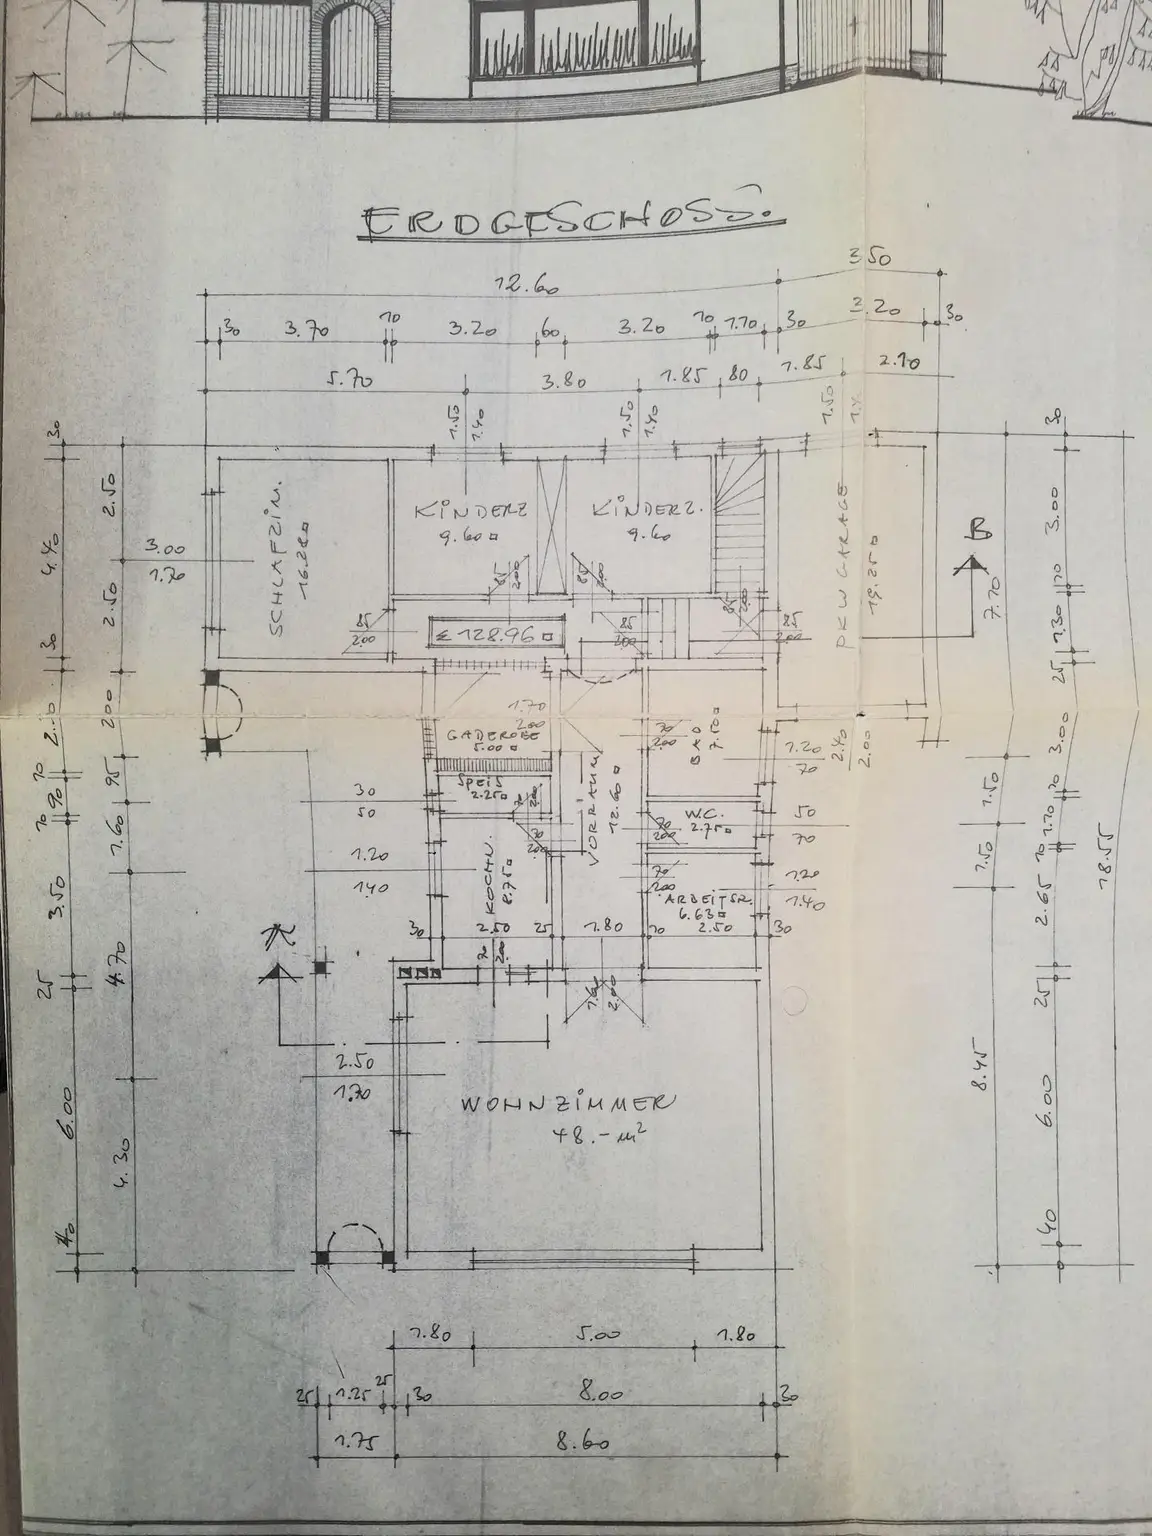 ERDGESCHOSS.
3.50
12.60
30 3.70 10 3.20 60 3.20 10 1.10 30 3.20 30
5.70 3.80 1.85 80 1.85 2.10
1.50 1.40 1.50 1.40 1.50
30
4.40
30
2.10
10
90
10
3.50
25
6.00
40
2.50
2.50
200
95
1.60
4.70
4.30
3.00
1.70
SCHLAFZIM.
16.28
KINDERZ
9.60
KINDERZ.
9.60
PKW GARAGE
19.25
85
200
85
200
85
200
85
200
85
200
85
200
Σ 128.96
B
1.70
200
GADEROBE
5.00
SPEIS
2.25
70
200
70
200
KOCHN.
8.75
VORRAUM
12.60
70
200
BAD
7.50
70
200
W.C.
2.75
70
200
ARBEITSR.
6.63
30 2.50 25 1.80 10 2.50 30
70
200
1.60
2.00
30
50
1.20
140
1.20
70
2.40
2.00
50
70
1.20
1.40
2.50
1.70
WOHNZIMMER
48.- m²
7.70
1.50
1.50
8.45
30
3.00
10
1.30
25
3.00
10
1.10
10
2.65
25
6.00
40
18.55
1.80 5.00 1.80
25 1.25 25 30 8.00 30
1.75 8.60